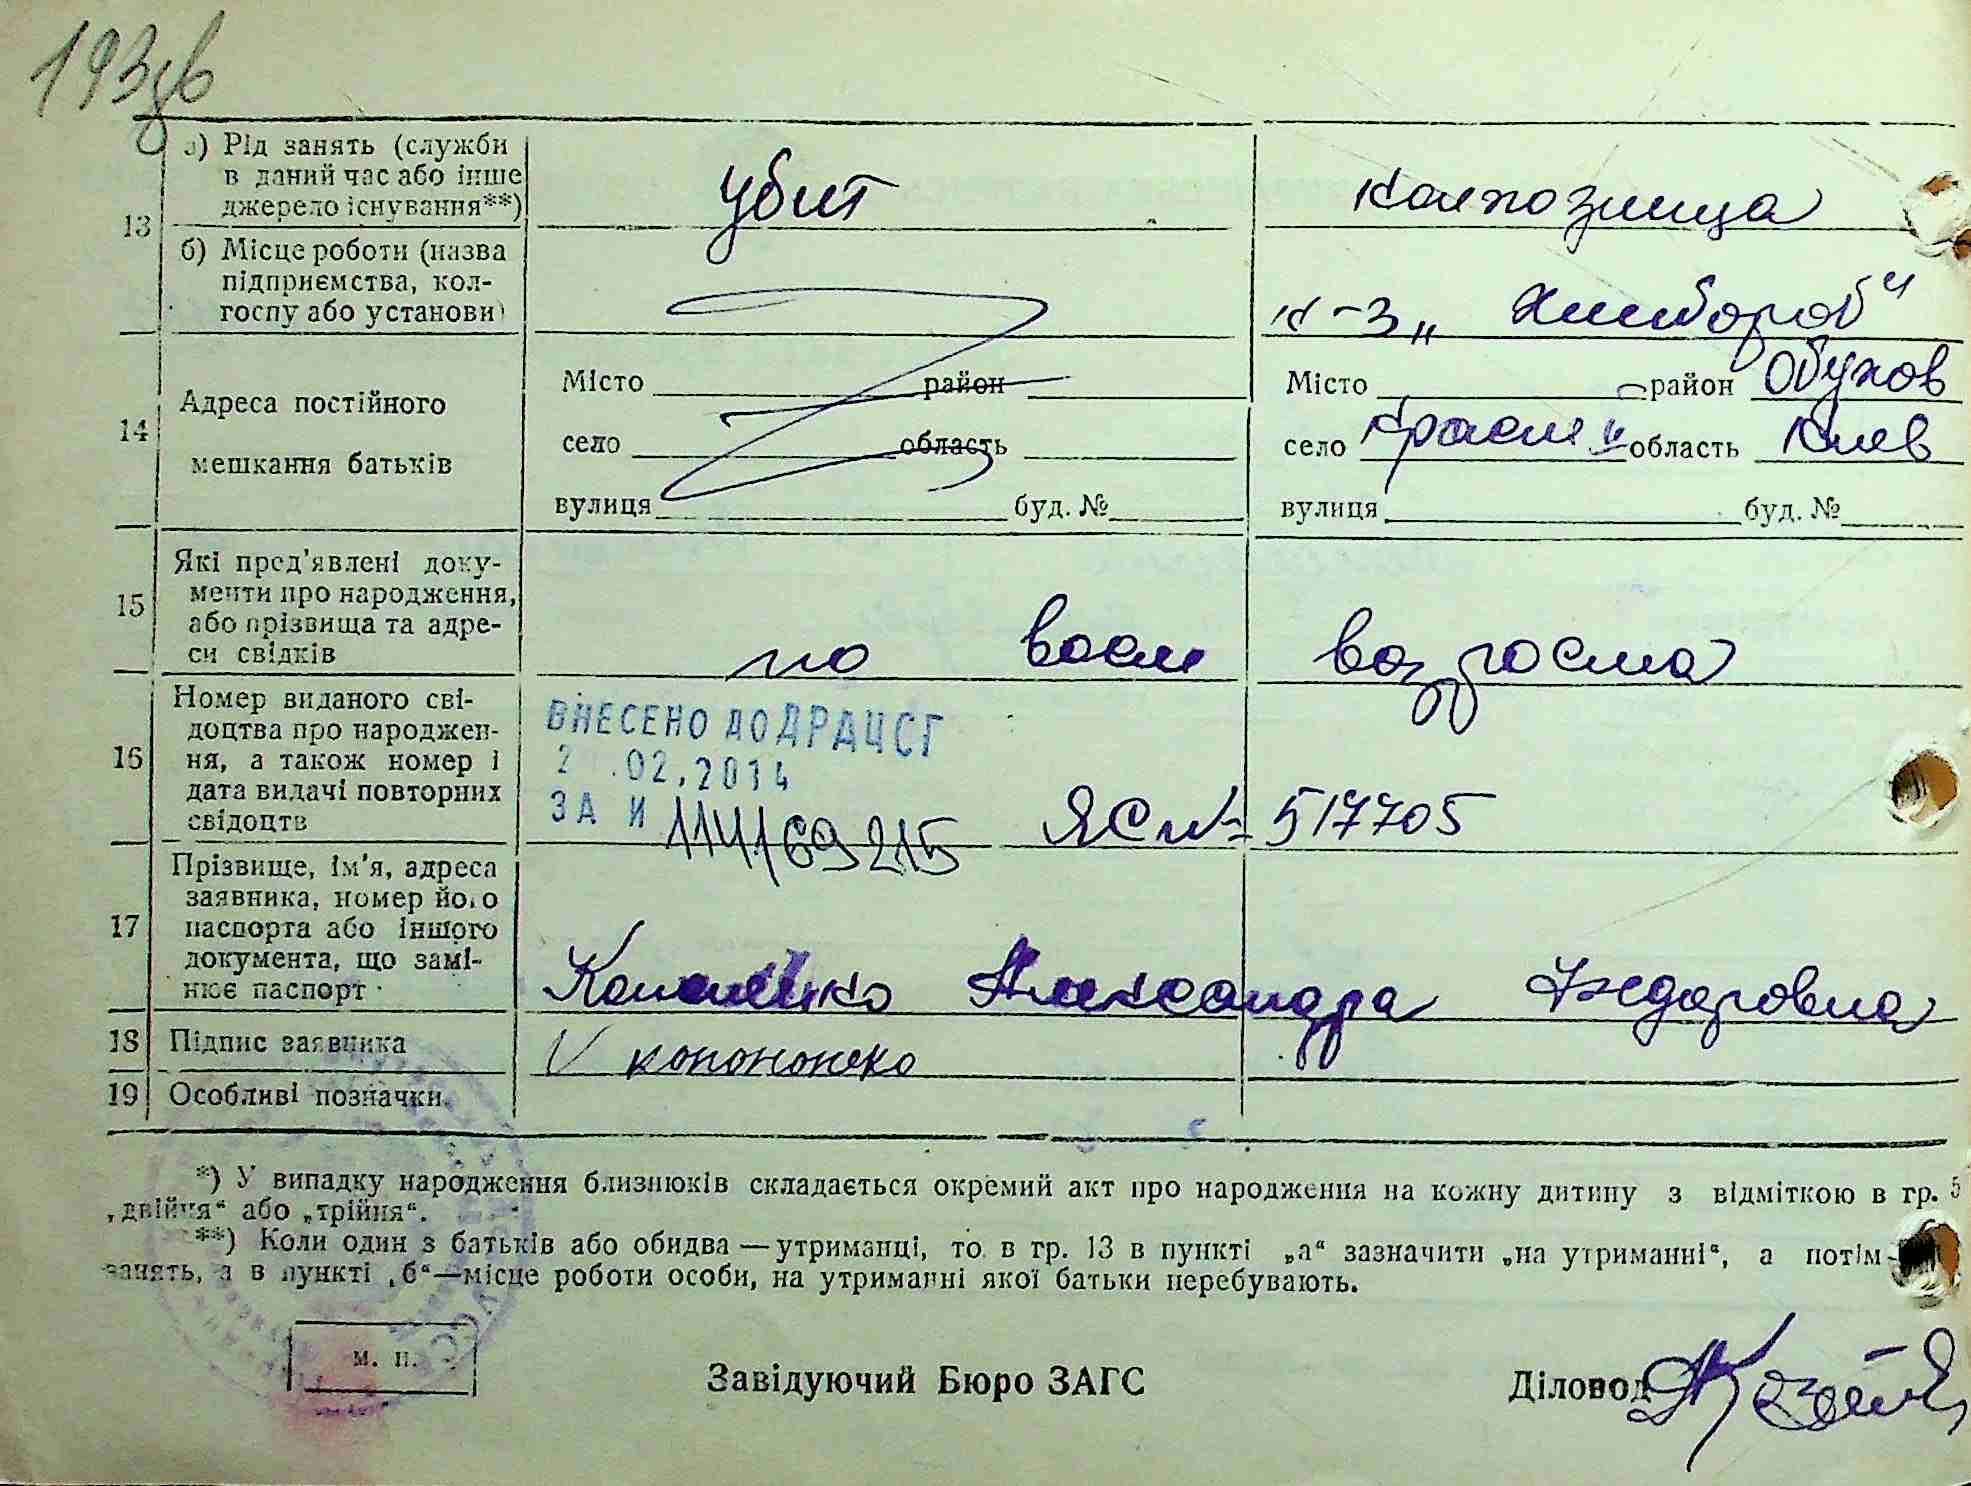 193зв
13
а) Рід занять (служби
в даний час або інше
джерело існування**)
убит
колхозница
б) Місце роботи (назва
підприємства, кол-
госпу або установи)
к-з „Хлибороб"
14
Адреса постійного
мешкання батьків
Місто район
село область
вулиця буд. №
Місто район Обухов
село Красн область Киев
вулиця буд. №
15
Які пред'явлені доку-
менти про народження,
або прізвища та адре-
си свідків
по воем возроста
16
Номер виданого сві-
доцтва про народжен-
ня, а також номер і
дата видачі повторних
свідоцтв
ВНЕСЕНО ДО ДРАЦСГ
2 .02.2014
ЗА И 114169215
ЯС № 517705
17
Прізвище, ім'я, адреса
заявника, номер його
паспорта або іншого
документа, що замі-
нює паспорт
Александра Федоровна
18
Підпис заявника
V
19
Особливі позначки
*) У випадку народження близнюків складається окремий акт про народження на кожну дитину з відміткою в гр. 5
„двійня" або „трійня".
**) Коли один з батьків або обидва — утриманці, то в гр. 13 в пункті „а" зазначити „на утриманні", а потім
занять, а в пункті „б"—місце роботи особи, на утриманні якої батьки перебувають.
м. п.
Завідуючий Бюро ЗАГС
Діловод